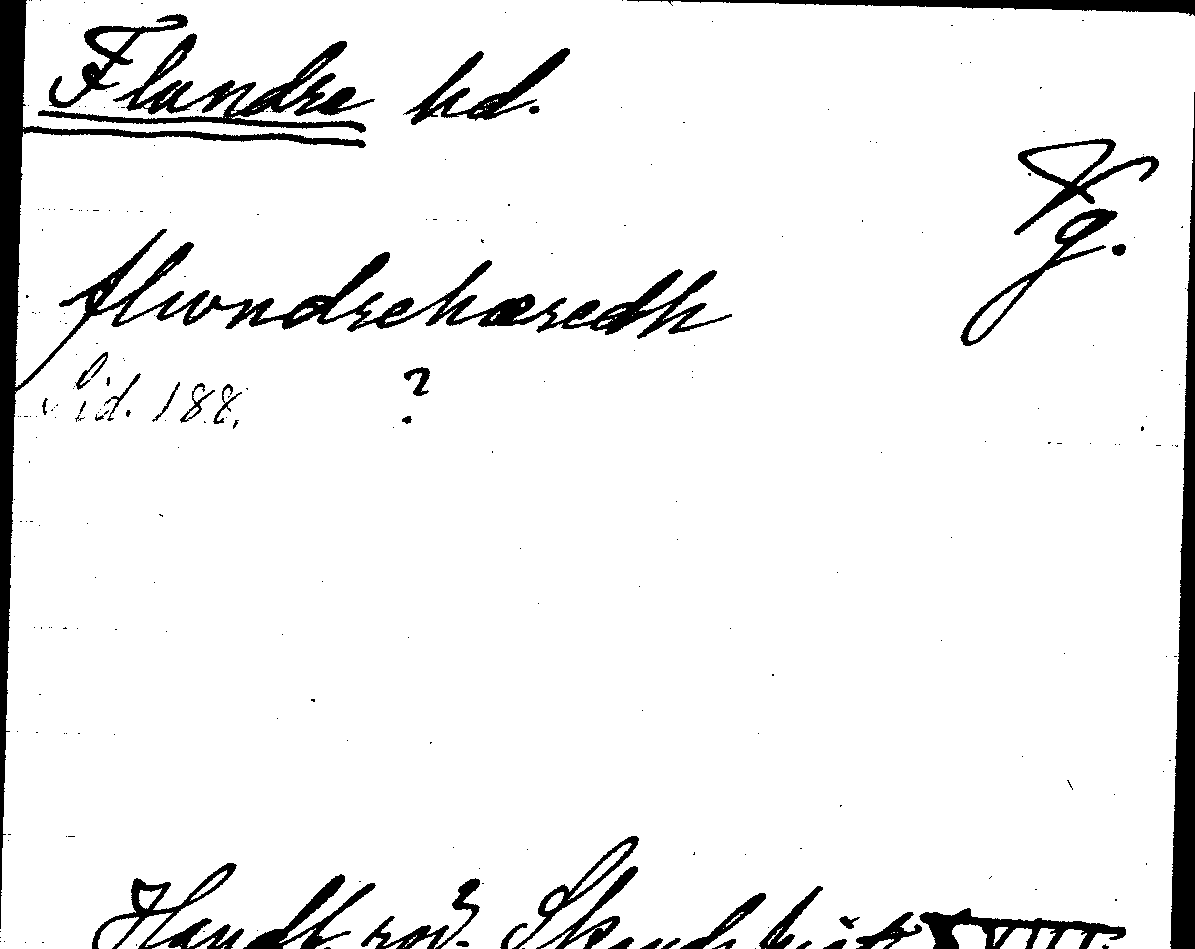 Flundre hd.
Vg.
flwndrehæredh
Sid. 188. ?
Handl. rör. Skand. hist. XVIII: